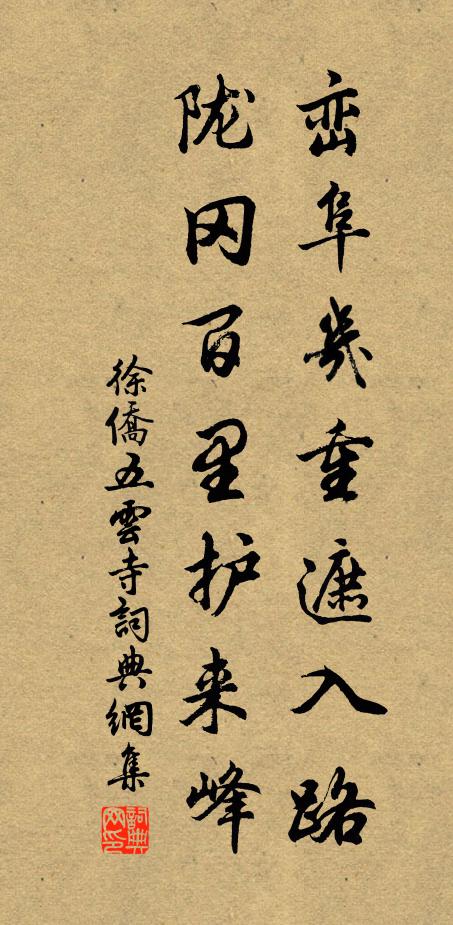 峦阜幾重遮入路
陇冈百里护来峰
徐僑五雲寺詞典網集
詞典网印